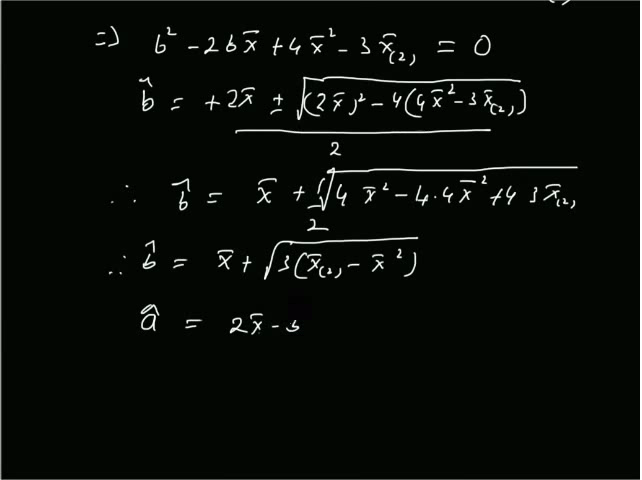 ⇒ b² - 2bx̄ + 4x̄² - 3x̄₍₂₎ = 0
b̂ = +2x̄ ± √((2x̄)² - 4(4x̄² - 3x̄₍₂₎)
2
∴ b̂ = x̄ + ½√4 x̄² - 4·4x̄² + 4 3x̄₍₂₎
∴ b̂ = x̄ + √3(x̄₍₂₎ - x̄²)
â = 2x̄ -